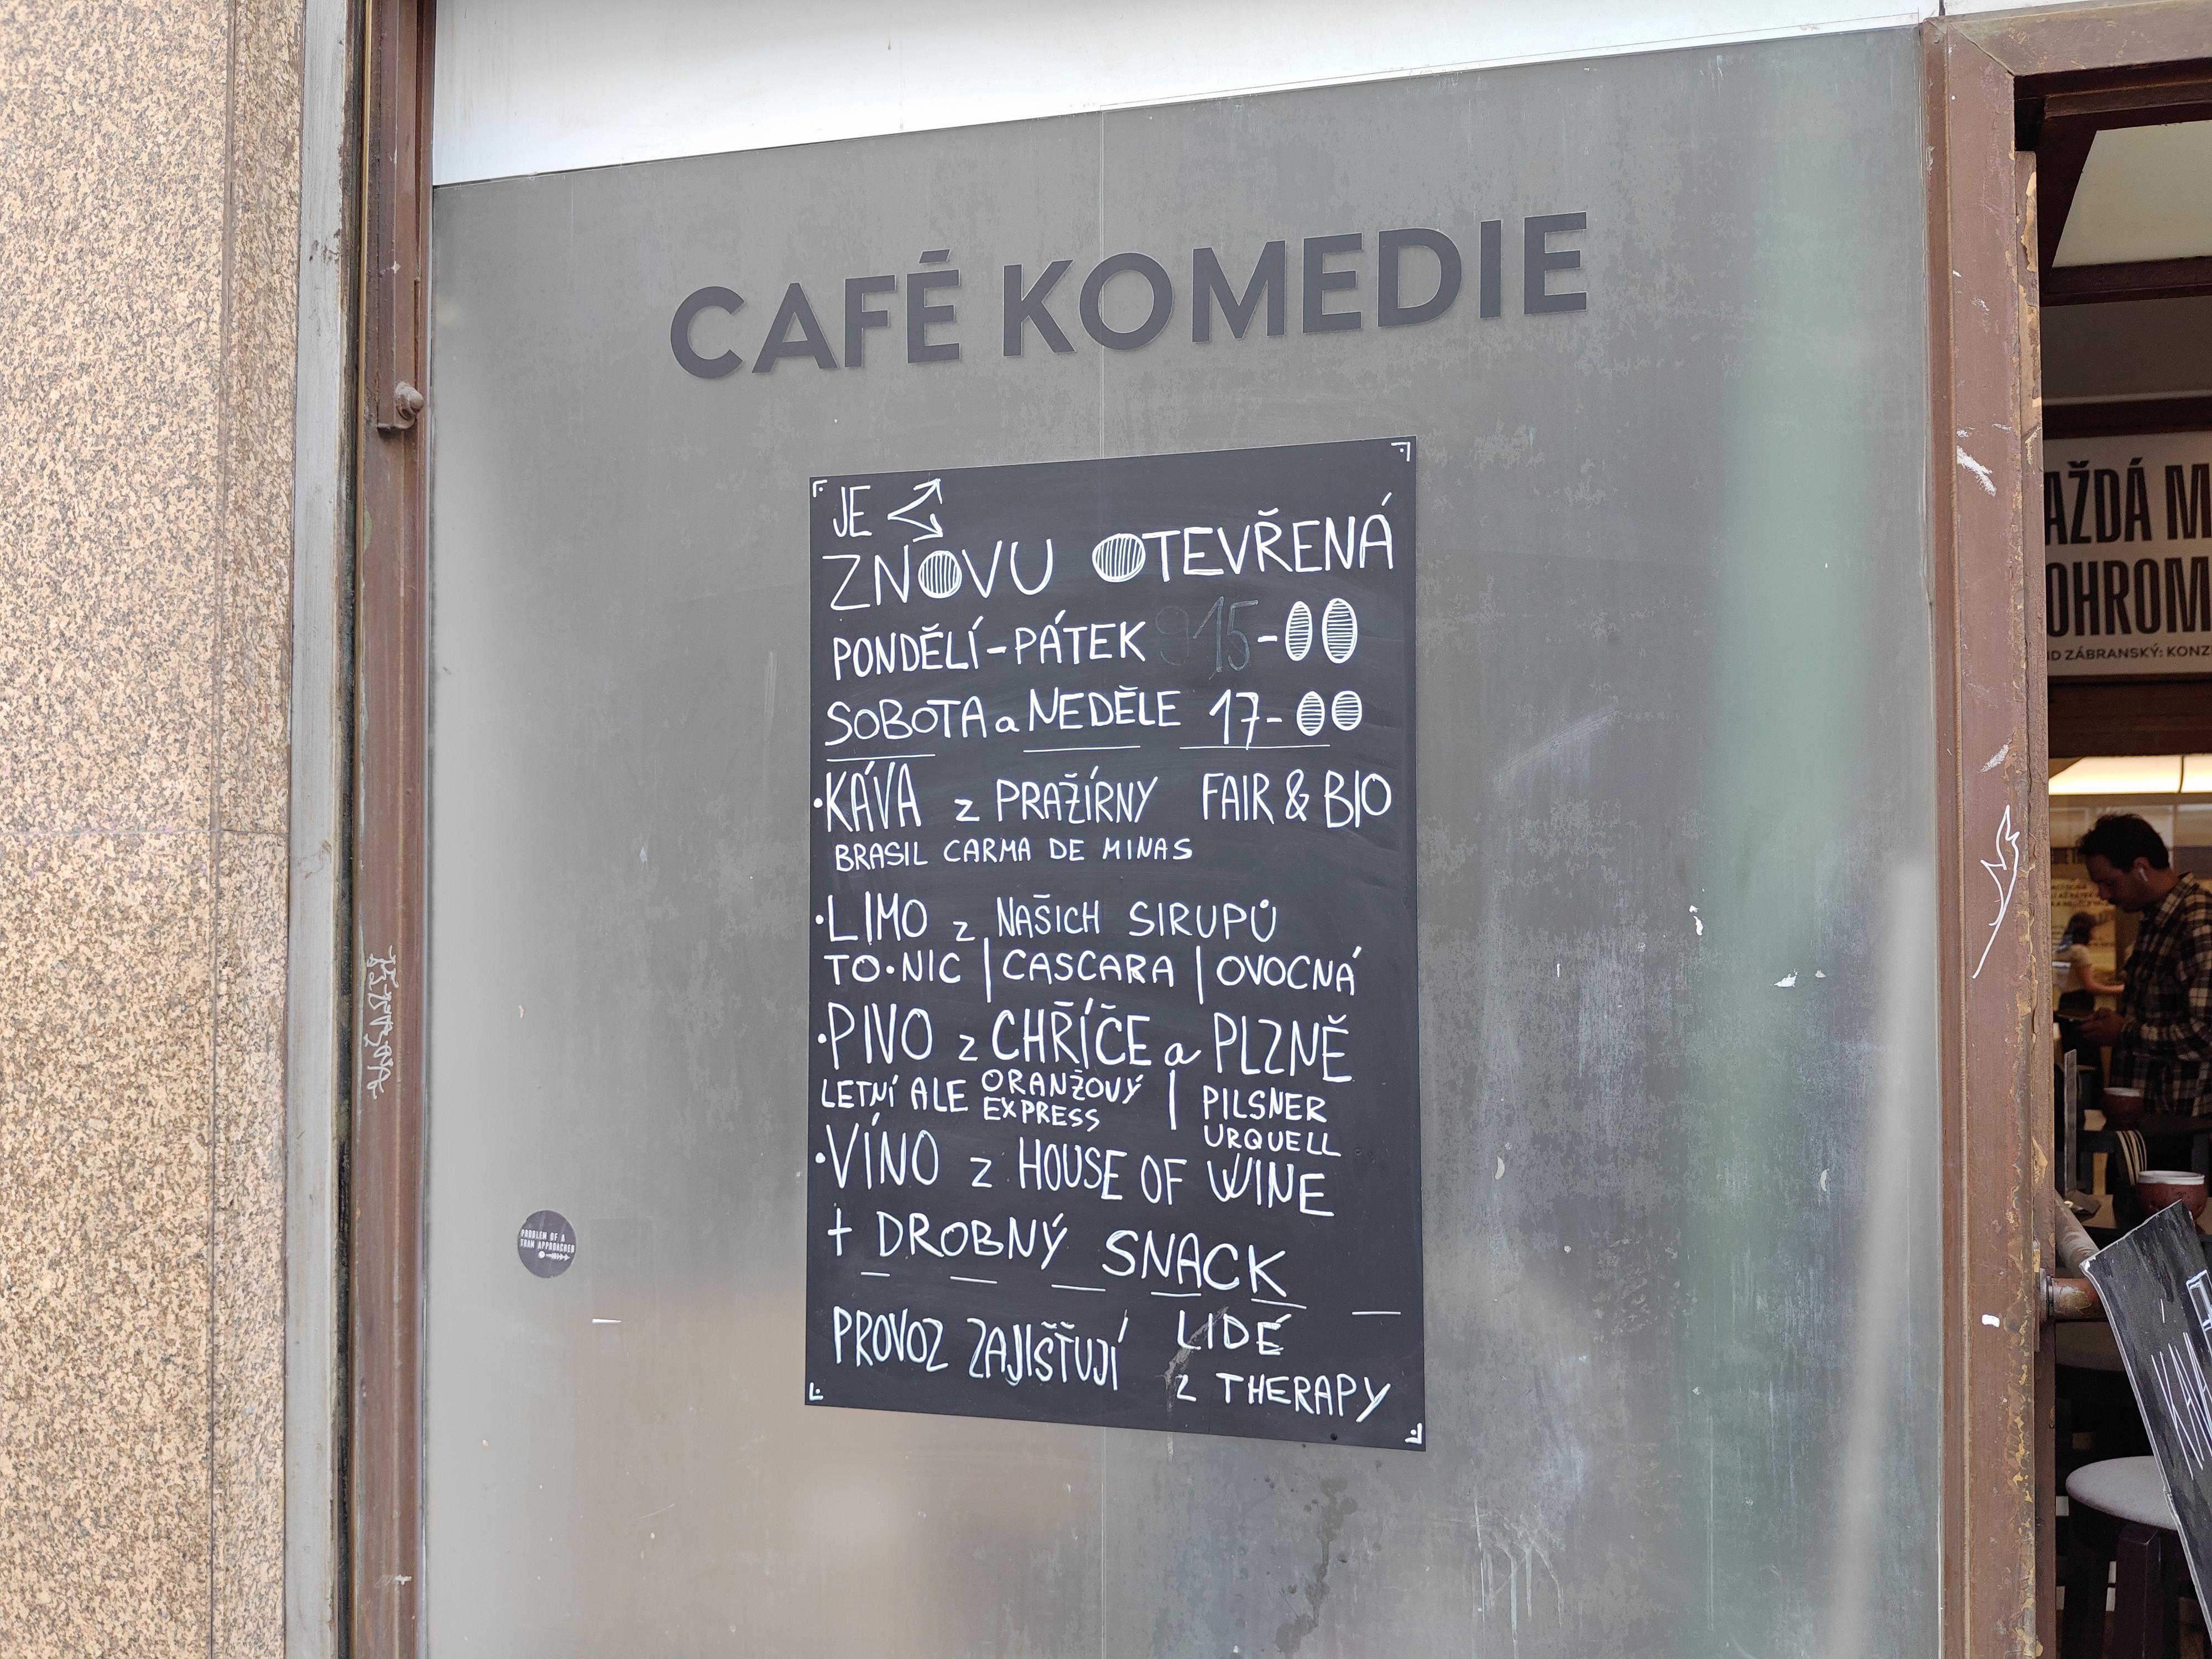 CAFÉ KOMEDIE
JE
ZNOVU OTEVŘENÁ
PONDĚLÍ-PÁTEK -00
SOBOTA a NEDĚLE 17-00
·KÁVA z PRAŽÍRNY FAIR & BIO
BRASIL CARMA DE MINAS
·LIMO z NAŠICH SIRUPŮ
TO·NIC | CASCARA | OVOCNÁ
·PIVO z CHŘÍČE a PLZNĚ
LETNÍ ALE ORANŽOVÝ EXPRESS | PILSNER URQUELL
·VÍNO z HOUSE OF WINE
+ DROBNÝ SNACK
PROVOZ ZAJIŠŤUJÍ LIDÉ
z THERAPY
PROBLEM OF A
TRAM APPROACHED
AŽDÁ M
OHROM
ID ZÁBRANSKÝ: KONZ